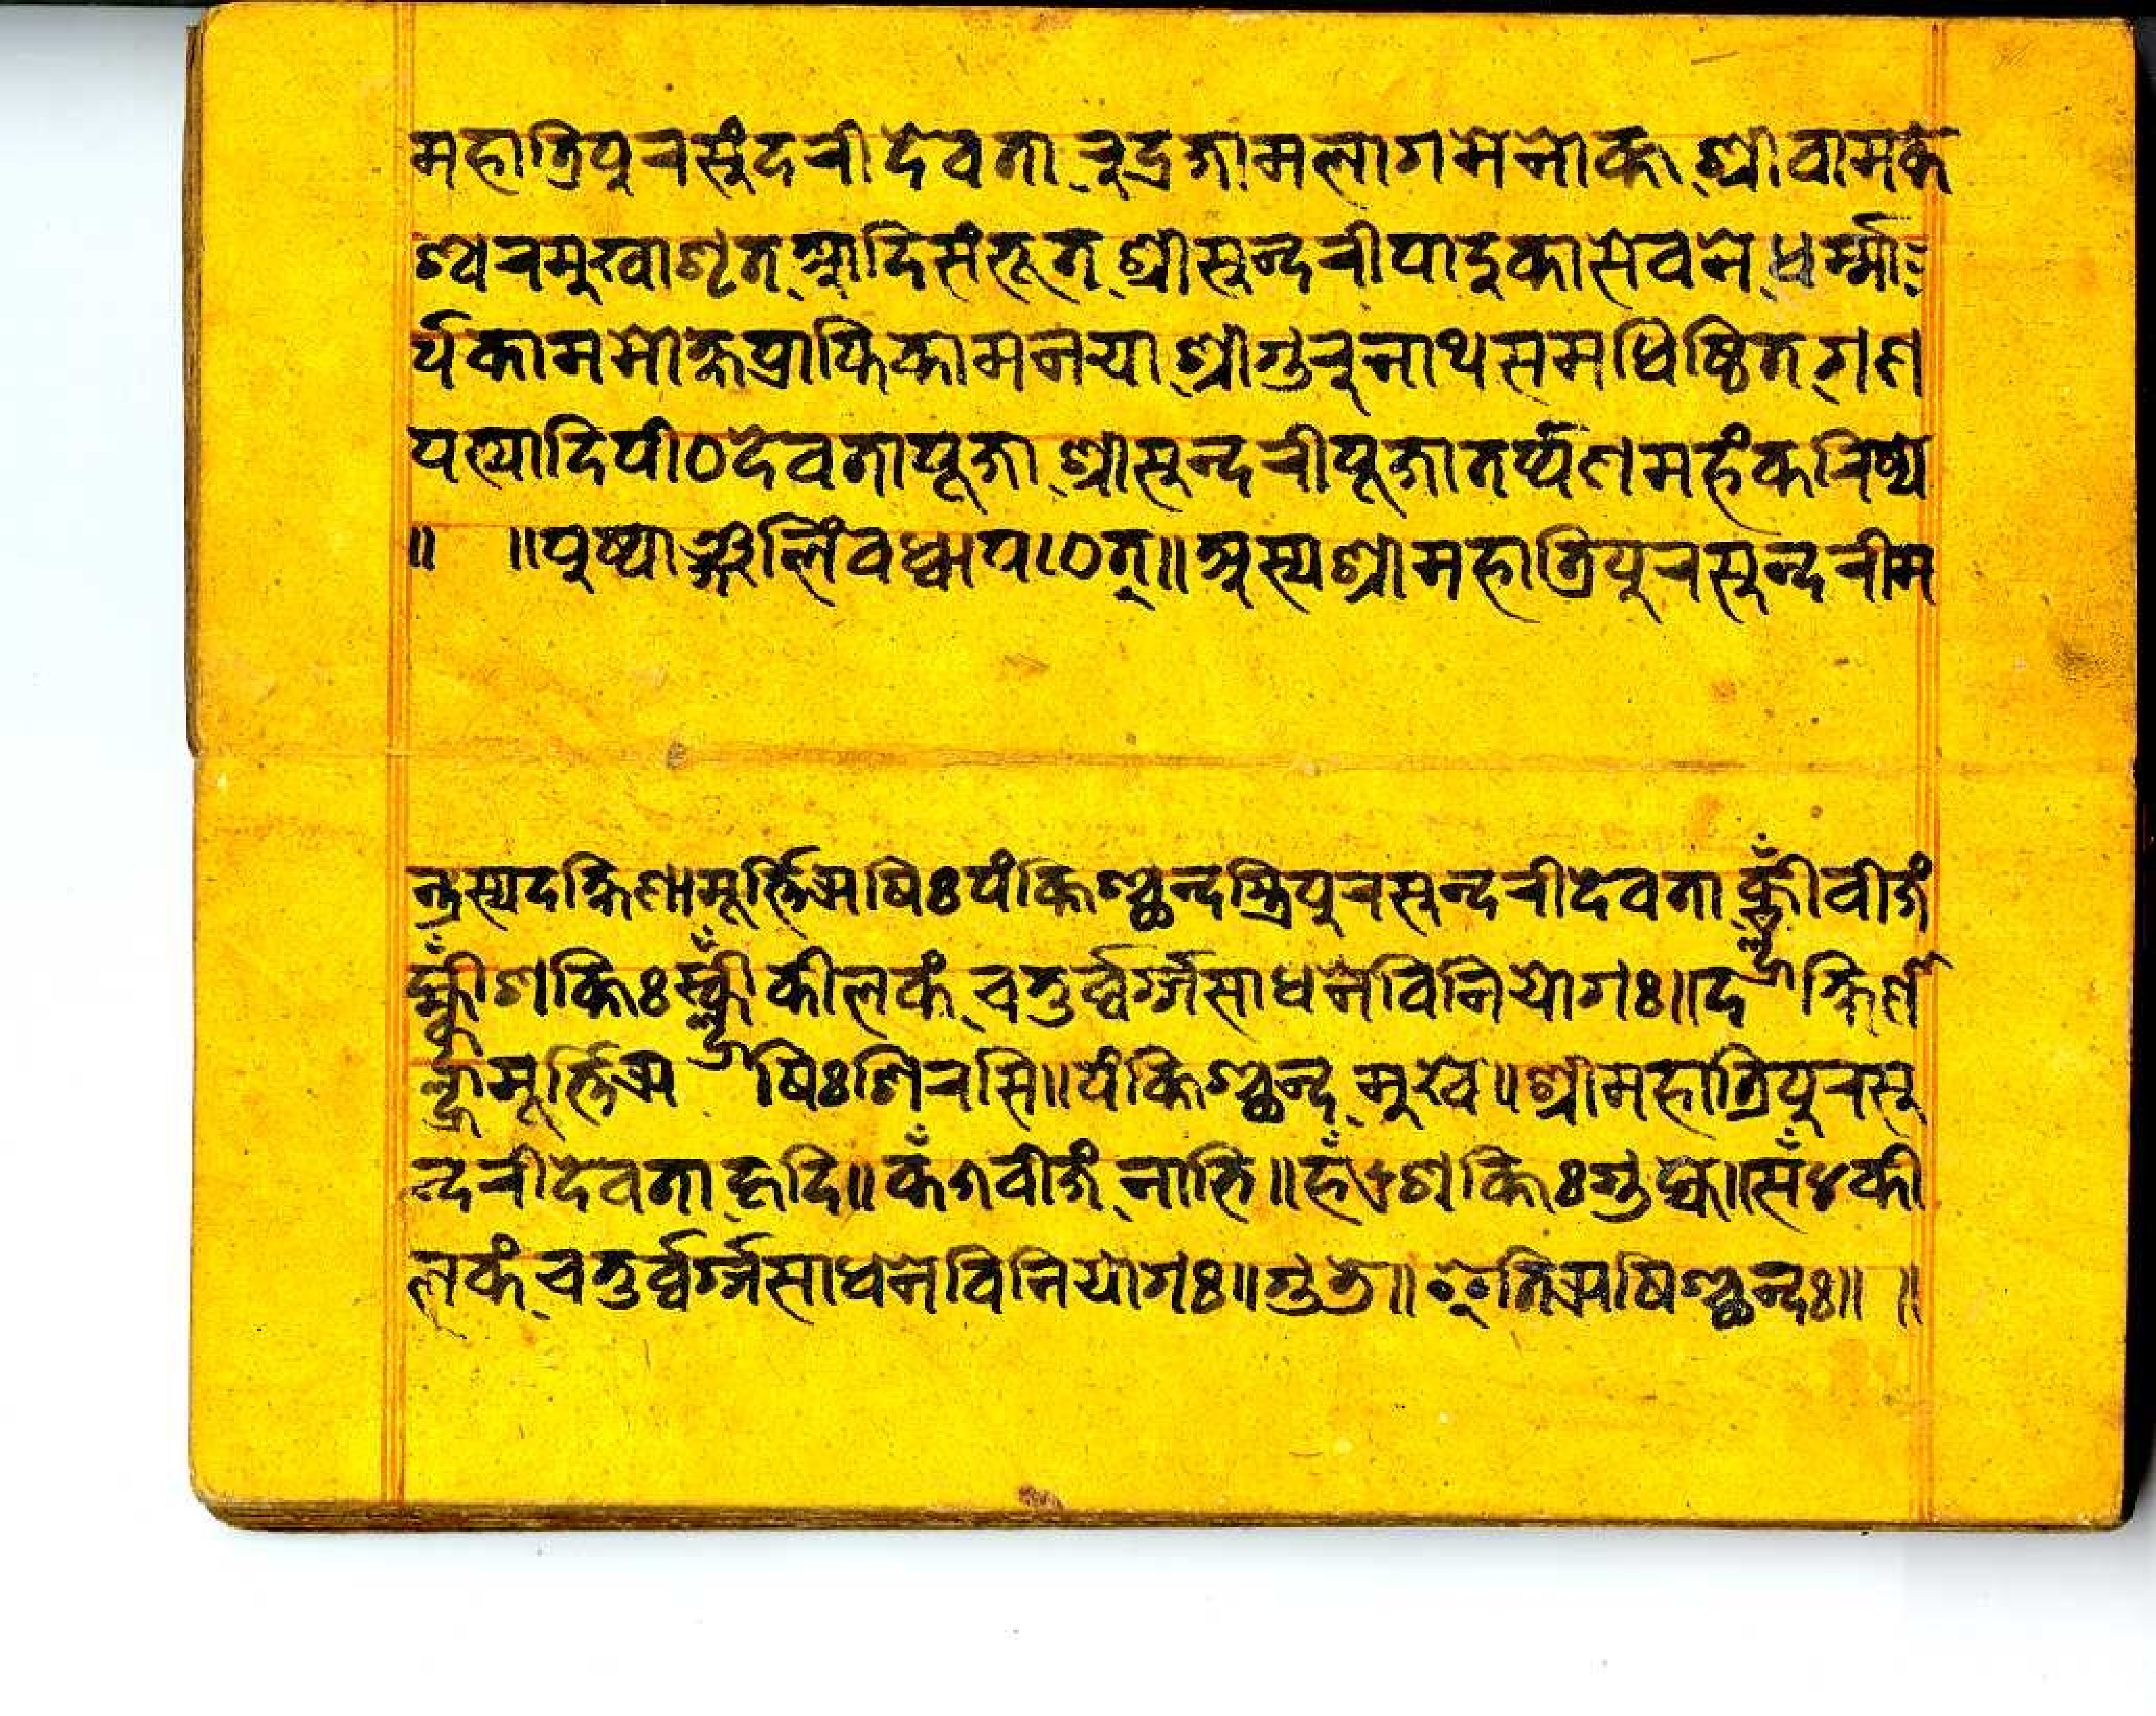 महात्रिपुरसुंदरीदेवता रुद्रजामलागमेनोक्त श्रीवामके
श्वरमुखाशृत आदिसंभूत श्रीसुन्दरीपादुकासेवने धर्म्मा
र्थकाममोक्षप्राप्तिकामनया श्रीगुरुनाथसमधिष्ठित गण
पत्यादिपीठदेवतापूजा श्रीसुन्दरीपूजातर्प्पणमहंकरिष्ये
॥ ॥पुष्पाञ्जुलिंवध्वापठेत्॥अस्यश्रीमहात्रिपुरसुन्दरीम
न्त्रस्यदक्षिणामूर्त्तिऋषिःपंक्तिश्छन्दस्त्रिपुरसुन्दरीदेवता वीजं
शक्तिः कीलकं चतुर्व्वर्ग्गसाधनेविनियोगः॥दक्षिणा
मूर्त्तिऋषिःशिरसि॥पंक्तिश्छन्द मुखे॥श्रीमहात्रिपुरसु
न्दरीदेवता हृदि॥कँ वीजं नाभि॥हँ शक्तिःगुह्ये॥सँ४की
लकं चतुर्व्वर्ग्गसाधनेविनियोगः॥ इतिऋषिश्छन्दः॥ ॥